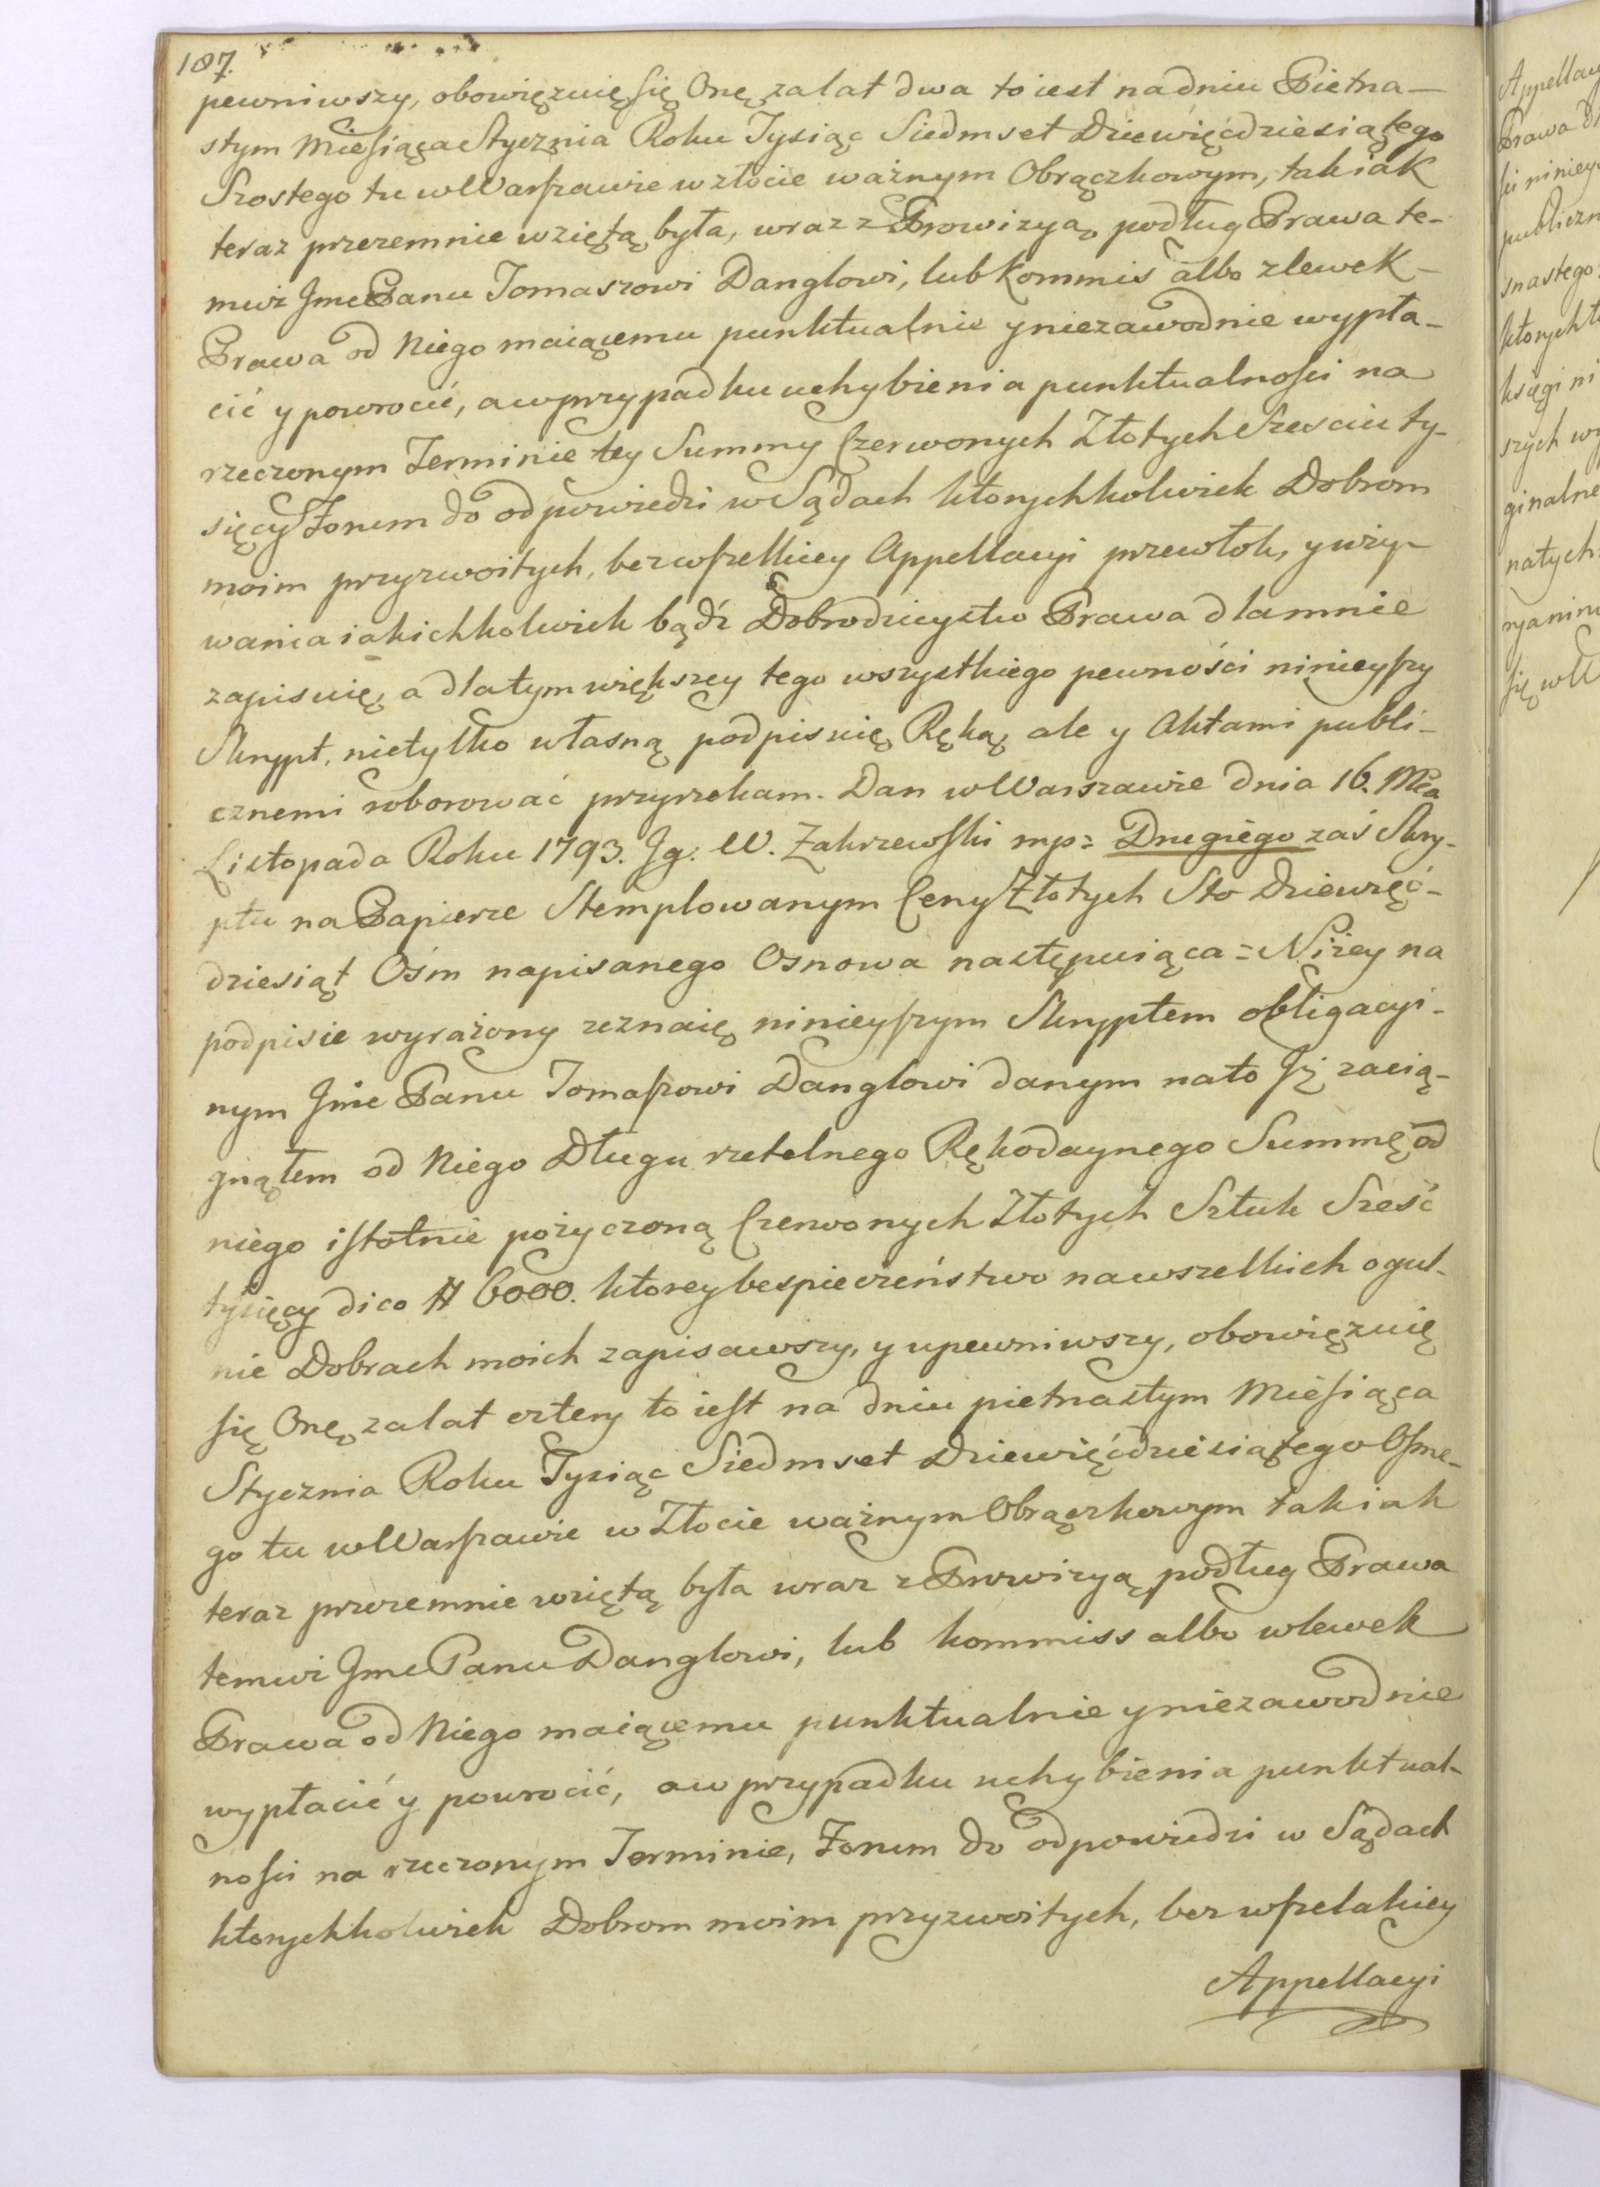 187.
pewniwszy, obowięzuię się Onę za lat dwa to iest na dniu Pietna-
stym Miesiąca Stycznia Roku Tysiąc Siedmset Dziewięćdziesiątego
Szostego tu w Warszawie w złocie ważnym Obrączkowym, tak iak
teraz przezemnie wziętą była, wraz z Prowizyą podług Prawa te-
muż Jme Panu Tomaszowi Danglowi, lub Kommis albo zlewek
Prawa od Niego maiącemu punktualnie y niezawodnie wypła-
cić y powrocić, a w przypadku uchybienia punktualności na
rzeczonym Terminie tey Summy Czerwonych Złotych Szesciu ty-
sięcy Forum do odpowiedzi w Sądach ktorychkolwiek Dobrom
moim przyzwoitych, bez wszelkiey Appellacyi przewłok, y uzy-
wania iakichkolwiek bądź Dobrodzieystw Prawa dla mnie
zapisuię, a dla tym większey tego wszystkiego pewności ninieyszy
Skrypt, nietylko własną podpisuię Ręką, ale y Aktami publi-
cznemi roborować przyrzekam. Dan w Warszawie dnia 16. Mca
Listopada Roku 1793. Jg: W. Zakrzewski mp= Drugiego zaś Skry-
ptu na Papierze Stemplowanym Ceny Złotych Sto Dziewięć-
dziesiąt Ośm napisanego Osnowa następuiąca = Niżey na
podpisie wyrażony zeznaię ninieyszym Skryptem obligacyi-
nym Jme Panu Tomaszowi Danglowi danym na to Jż zacią-
gnąłem od Niego Długu rzetelnego Rękodaynego Summę od
niego istotnie pożyczoną Czerwonych Złotych Sztuk Sześć
tysięcy dico # 6000. ktorey bespieczeństwo na wszelkich ogul-
nie Dobrach moich zapisawszy, y upewniwszy, obowięzuię
się Onę za lat cztery to iest na dniu pietnastym Miesiąca
Stycznia Roku Tysiąc Siedmset Dziewięćdziesiątego Osme-
go tu w Warszawie w Złocie ważnym Obrączkowym tak iak
teraz przezemnie wziętą była wraz z Prowizyą podług Prawa
temuż Jme Panu Danglowi, lub kommiss albo wlewek
Prawa od Niego maiącemu punktualnie y niezawodnie
wypłacić y powrocić, a w przypadku uchybienia punktual-
ności na rzeczonym Terminie, Forum do odpowiedzi w Sądach
ktorychkolwiek Dobrom moim przyzwoitych, bez wszelakiey
Appellacyi